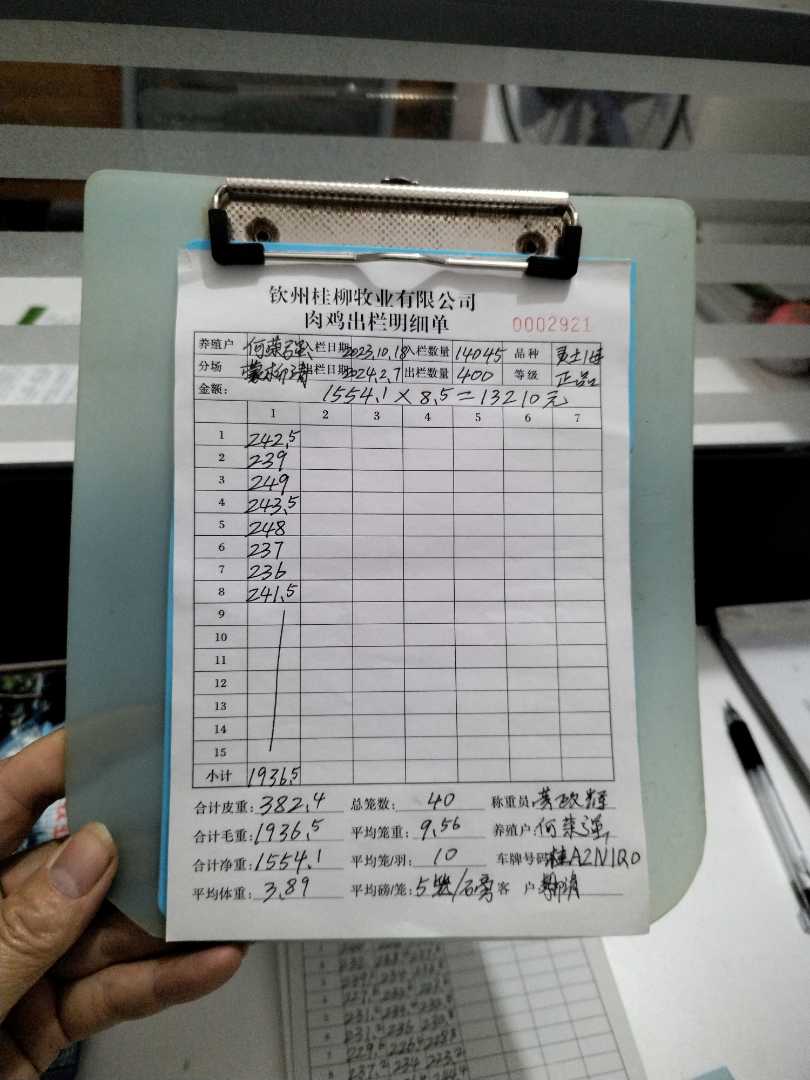 钦州桂柳牧业有限公司
肉鸡出栏明细单 0002921
养殖户 何荣强 入栏日期 2023.10.18 入栏数量 14045 品种
分场 出栏日期 2024.2.7 出栏数量 400 等级 正品
金额: 1554.1 × 8.5 = 13210元
1 2 3 4 5 6 7
1 242.5
2 239
3 249
4 243.5
5 248
6 237
7 236
8 241.5
9
10
11
12
13
14
15
小计 1936.5
合计皮重: 382.4 总笼数: 40 称重员
合计毛重: 1936.5 平均笼重: 9.56 养殖户: 何荣强
合计净重: 1554.1 平均笼/羽: 10 车牌号码: 桂A2N1Q0
平均体重: 3.89 平均磅/笼: 5 客 户